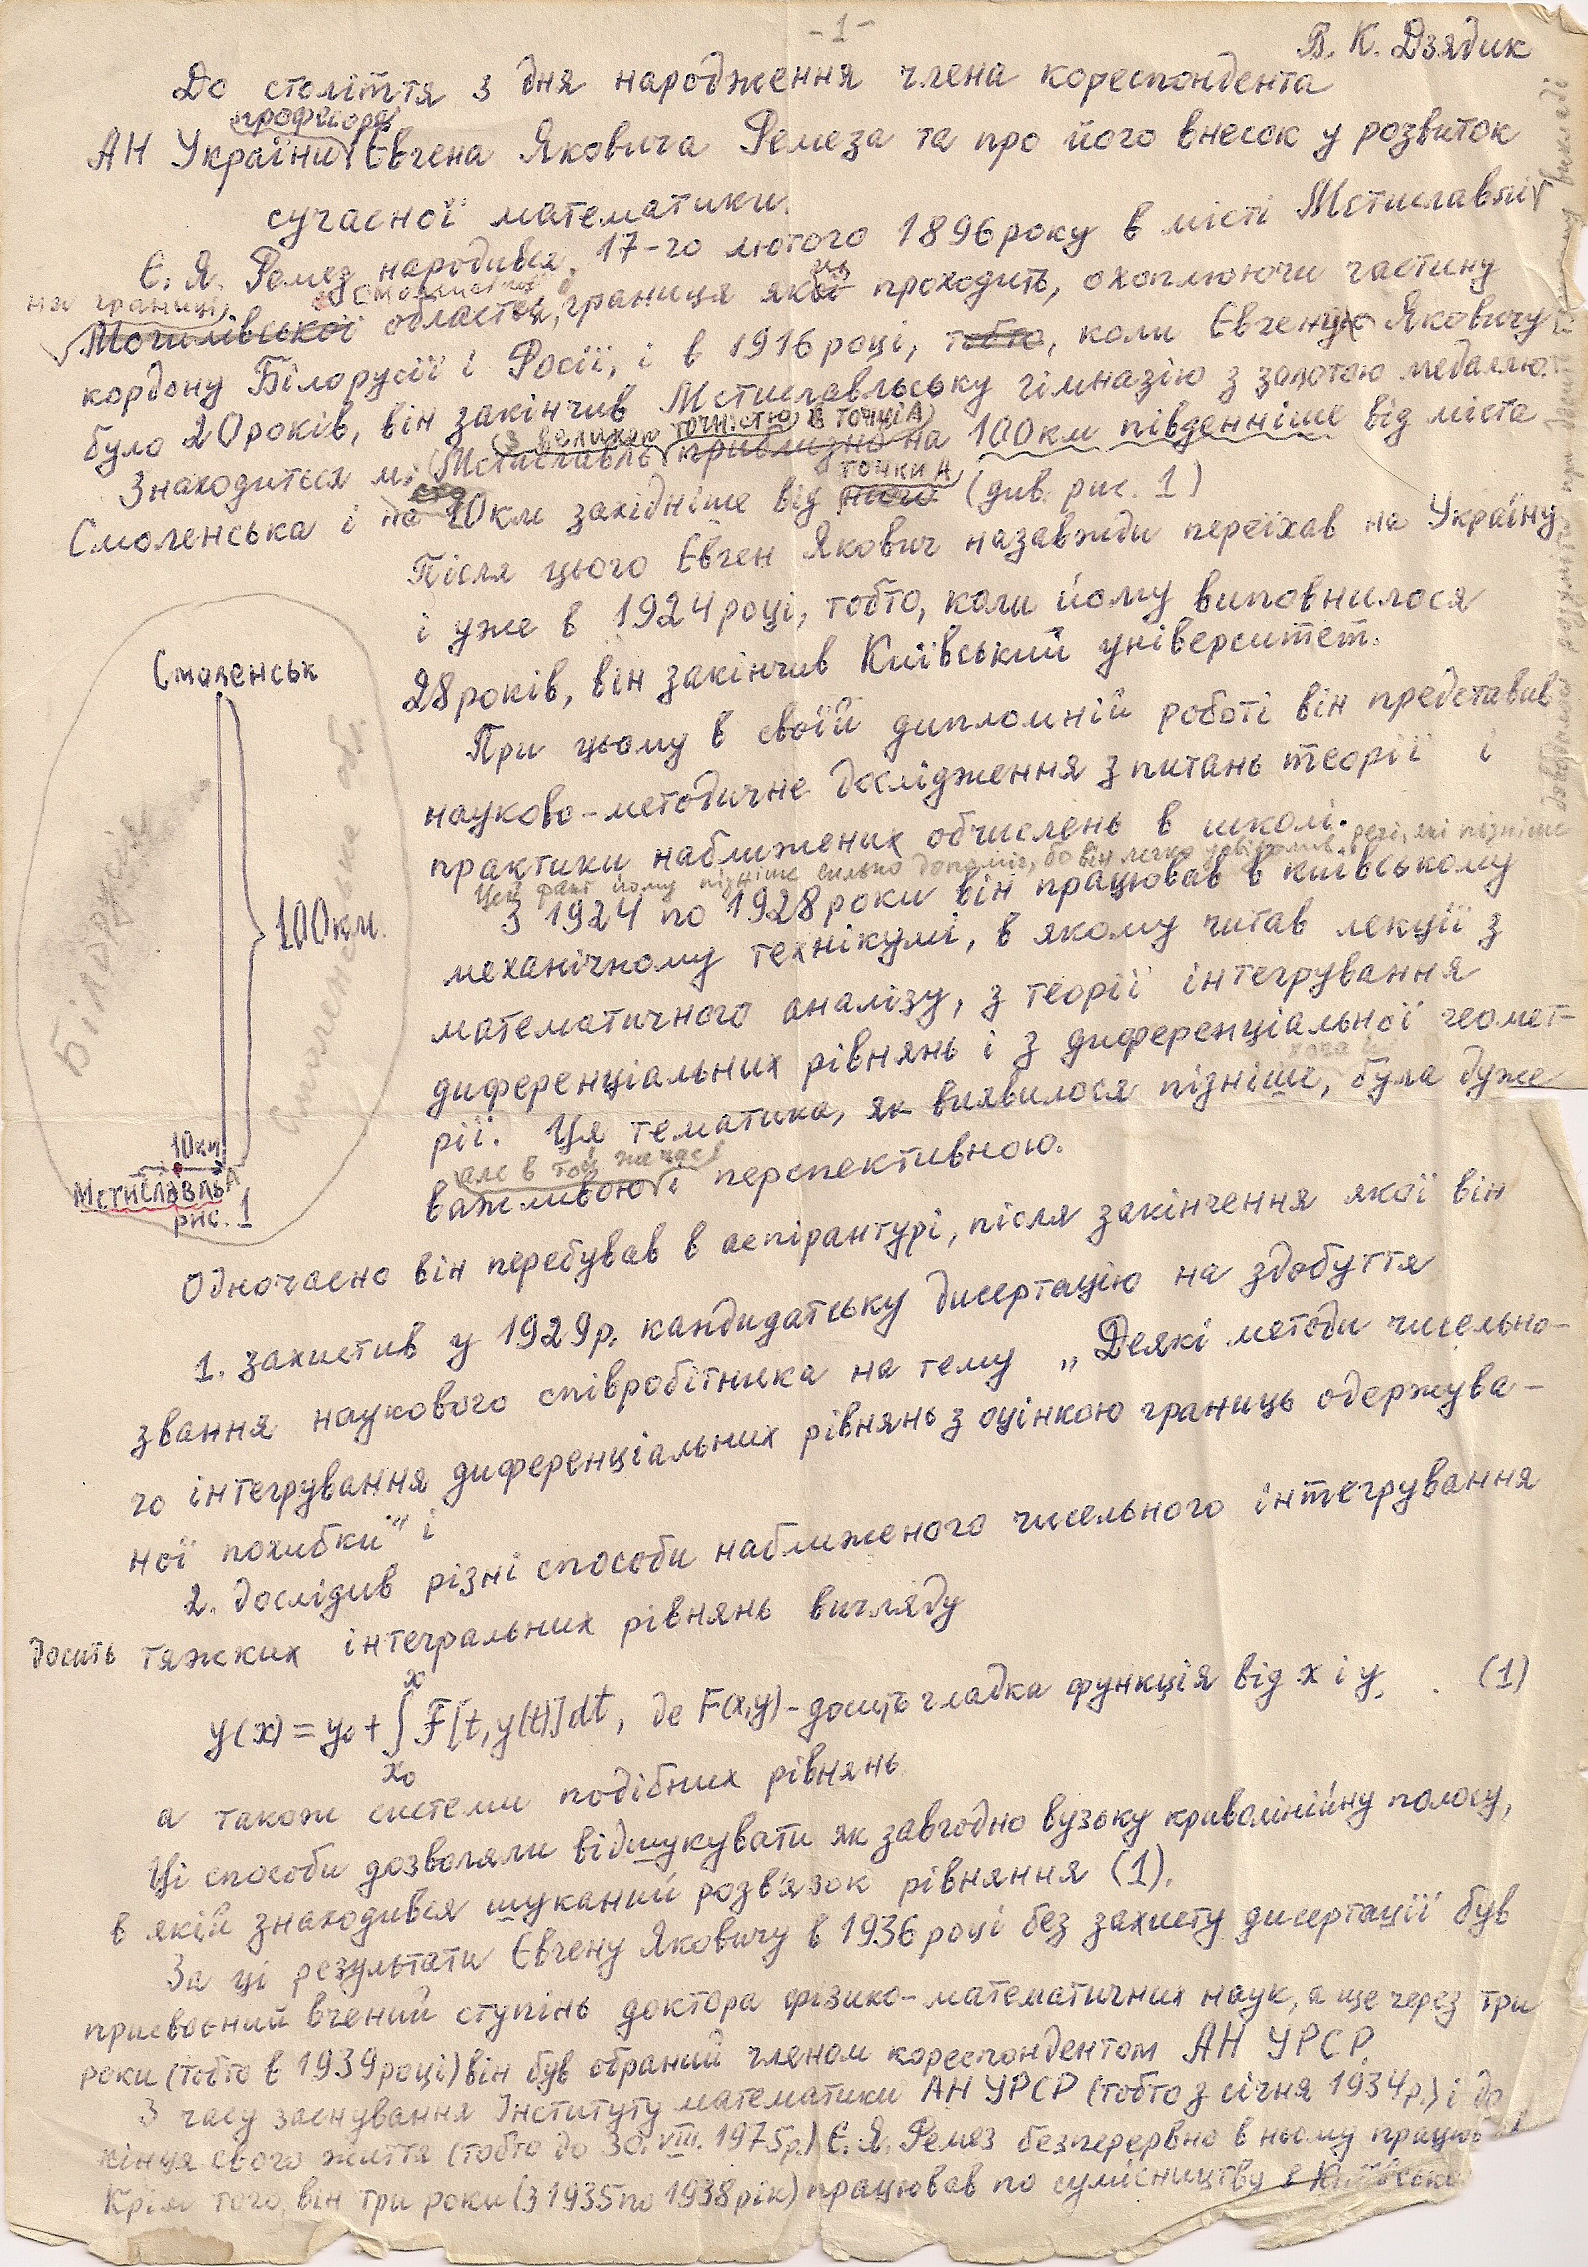 -1-
В. К. Дзядик
До століття з дня народження члена кореспондента
професора
АН України Євгена Яковича Ремеза та про його внесок у розвиток
сучасної математики.
Є. Я. Ремез народився 17-го лютого 1896 року в місті Мстиславлі
на границі
Смоленської
Могилівської області, границя якої проходить, охоплюючи частину
кордону Білорусії і Росії, і в 1916 році, тобто, коли Євгену Яковичу
було 20 років, він закінчив Мстиславльську гімназію з золотою медаллю.
з великою точністю в точці А
Знаходиться м. Мстиславль приблизно на 100 км південніше від міста
точки А
Смоленська і на 10 км західніше від нього (див. рис. 1)
Після цього Євген Якович назавжди переїхав на Україну
і уже в 1924 році, тобто, коли йому виповнилося
28 років, він закінчив Київський університет.
При цьому в своїй дипломній роботі він представив
науково-методичне дослідження з питань теорії і
практики наближених обчислень в школі.
Цей факт йому пізніше сильно допоміг, бо він легко речі, які пізніше
З 1924 по 1928 роки він працював в київському
механічному технікумі, в якому читав лекції з
математичного аналізу, з теорії інтегрування
диференціальних рівнянь і з диференціальної геомет-
хоча
рії. Ця тематика, як виявилося пізніше, була дуже
але в той же час
важливою і перспективною.
Смоленськ
100 км.
Білорусія
Смоленська об.
10 км
А
Мстиславль
рис. 1
Одночасно він перебував в аспірантурі, після закінчення якої він
1. захистив у 1929 р. кандидатську дисертацію на здобуття
звання наукового співробітника на тему „Деякі методи чисельно-
го інтегрування диференціальних рівнянь з оцінкою границь одержува-
ної похибки" і
2. дослідив різні способи наближеного чисельного інтегрування
досить тяжких інтегральних рівнянь вигляду
y(x) = y₀ + ∫ₓ₀ˣ F[t, y(t)]dt, де F(x,y) - досить гладка функція від x і y, (1)
а також системи подібних рівнянь.
Ці способи дозволяли відшукувати як завгодно вузьку криволінійну полосу,
в якій знаходився шуканий розв'язок рівняння (1).
За ці результати Євгену Яковичу в 1936 році без захисту дисертації був
присвоєний вчений ступінь доктора фізико-математичних наук, а ще через три
роки (тобто в 1939 році) він був обраний членом кореспондентом АН УРСР.
З часу заснування Інституту математики АН УРСР (тобто з січня 1934 р.) і до
кінця свого життя (тобто до 30. VIII. 1975 р.) Є. Я. Ремез безперервно в ньому
Крім того, він три роки (з 1935 по 1938 рік) працював по сумісництву в